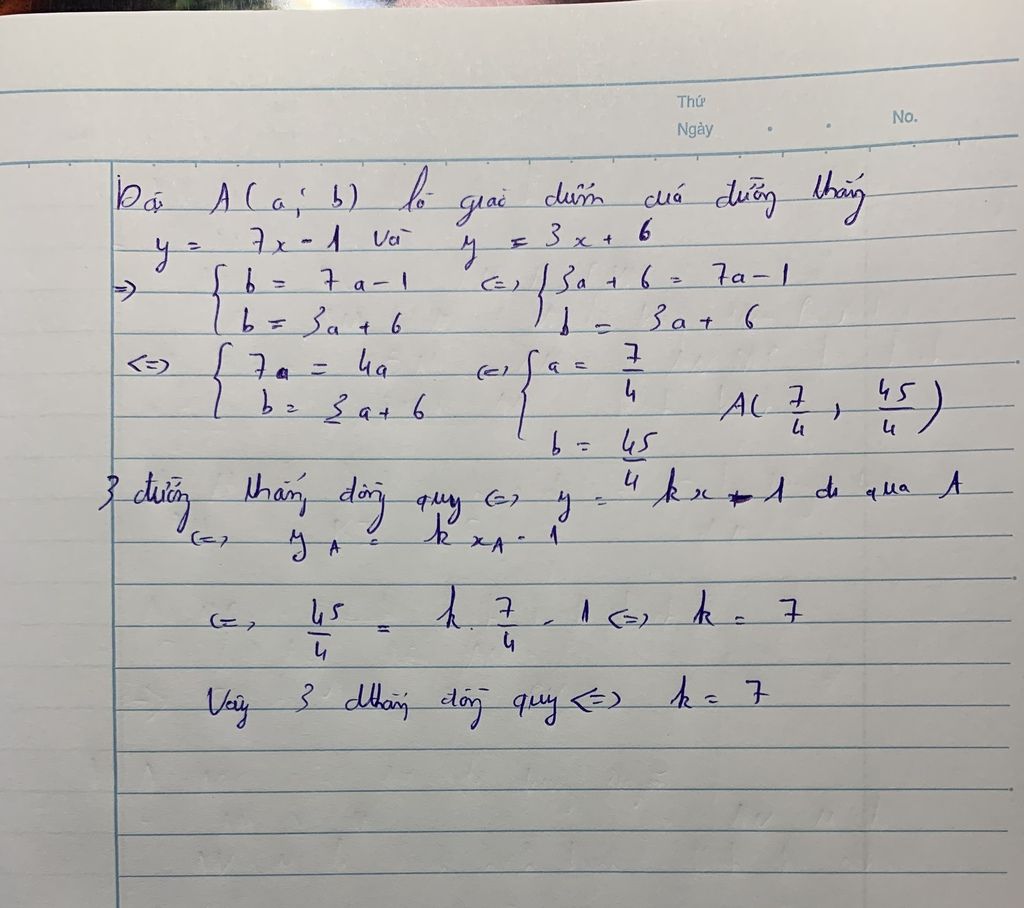 Thứ
Ngày . . No.
Gọi A(a; b) là giao điểm của đường thẳng
y = 7x - 1 và y = 3x + 6
=> { b = 7a - 1 <=> { 3a + 6 = 7a - 1
b = 3a + 6 b = 3a + 6
<=> { 7a = 4a <=> { a = 7/4
b = 3a + 6 b = 45/4 A( 7/4 , 45/4 )
3 đường thẳng đồng quy <=> y = kx - 1 đi qua A
<=> y_A = k x_A - 1
<=> 45/4 = k. 7/4 - 1 <=> k = 7
Vậy 3 đthẳng đồng quy <=> k = 7